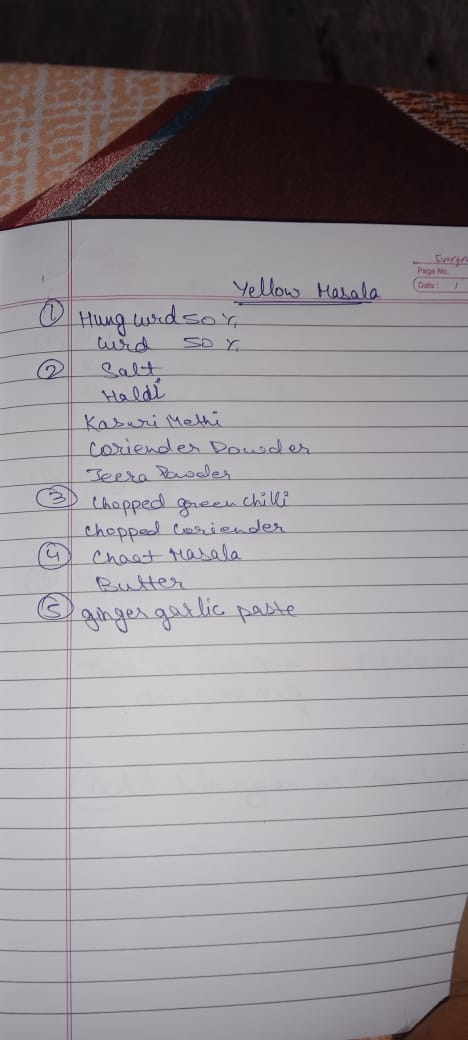 Page No.
Date: /
Yellow Masala
① Hung curd 50 %
Curd 50 %
② Salt
Haldi
Kasuri Methi
Coriender Powder
Jeera Powder
③ Chopped green chilli
Chopped Coriender
④ Chaat Masala
Butter
⑤ ginger garlic paste